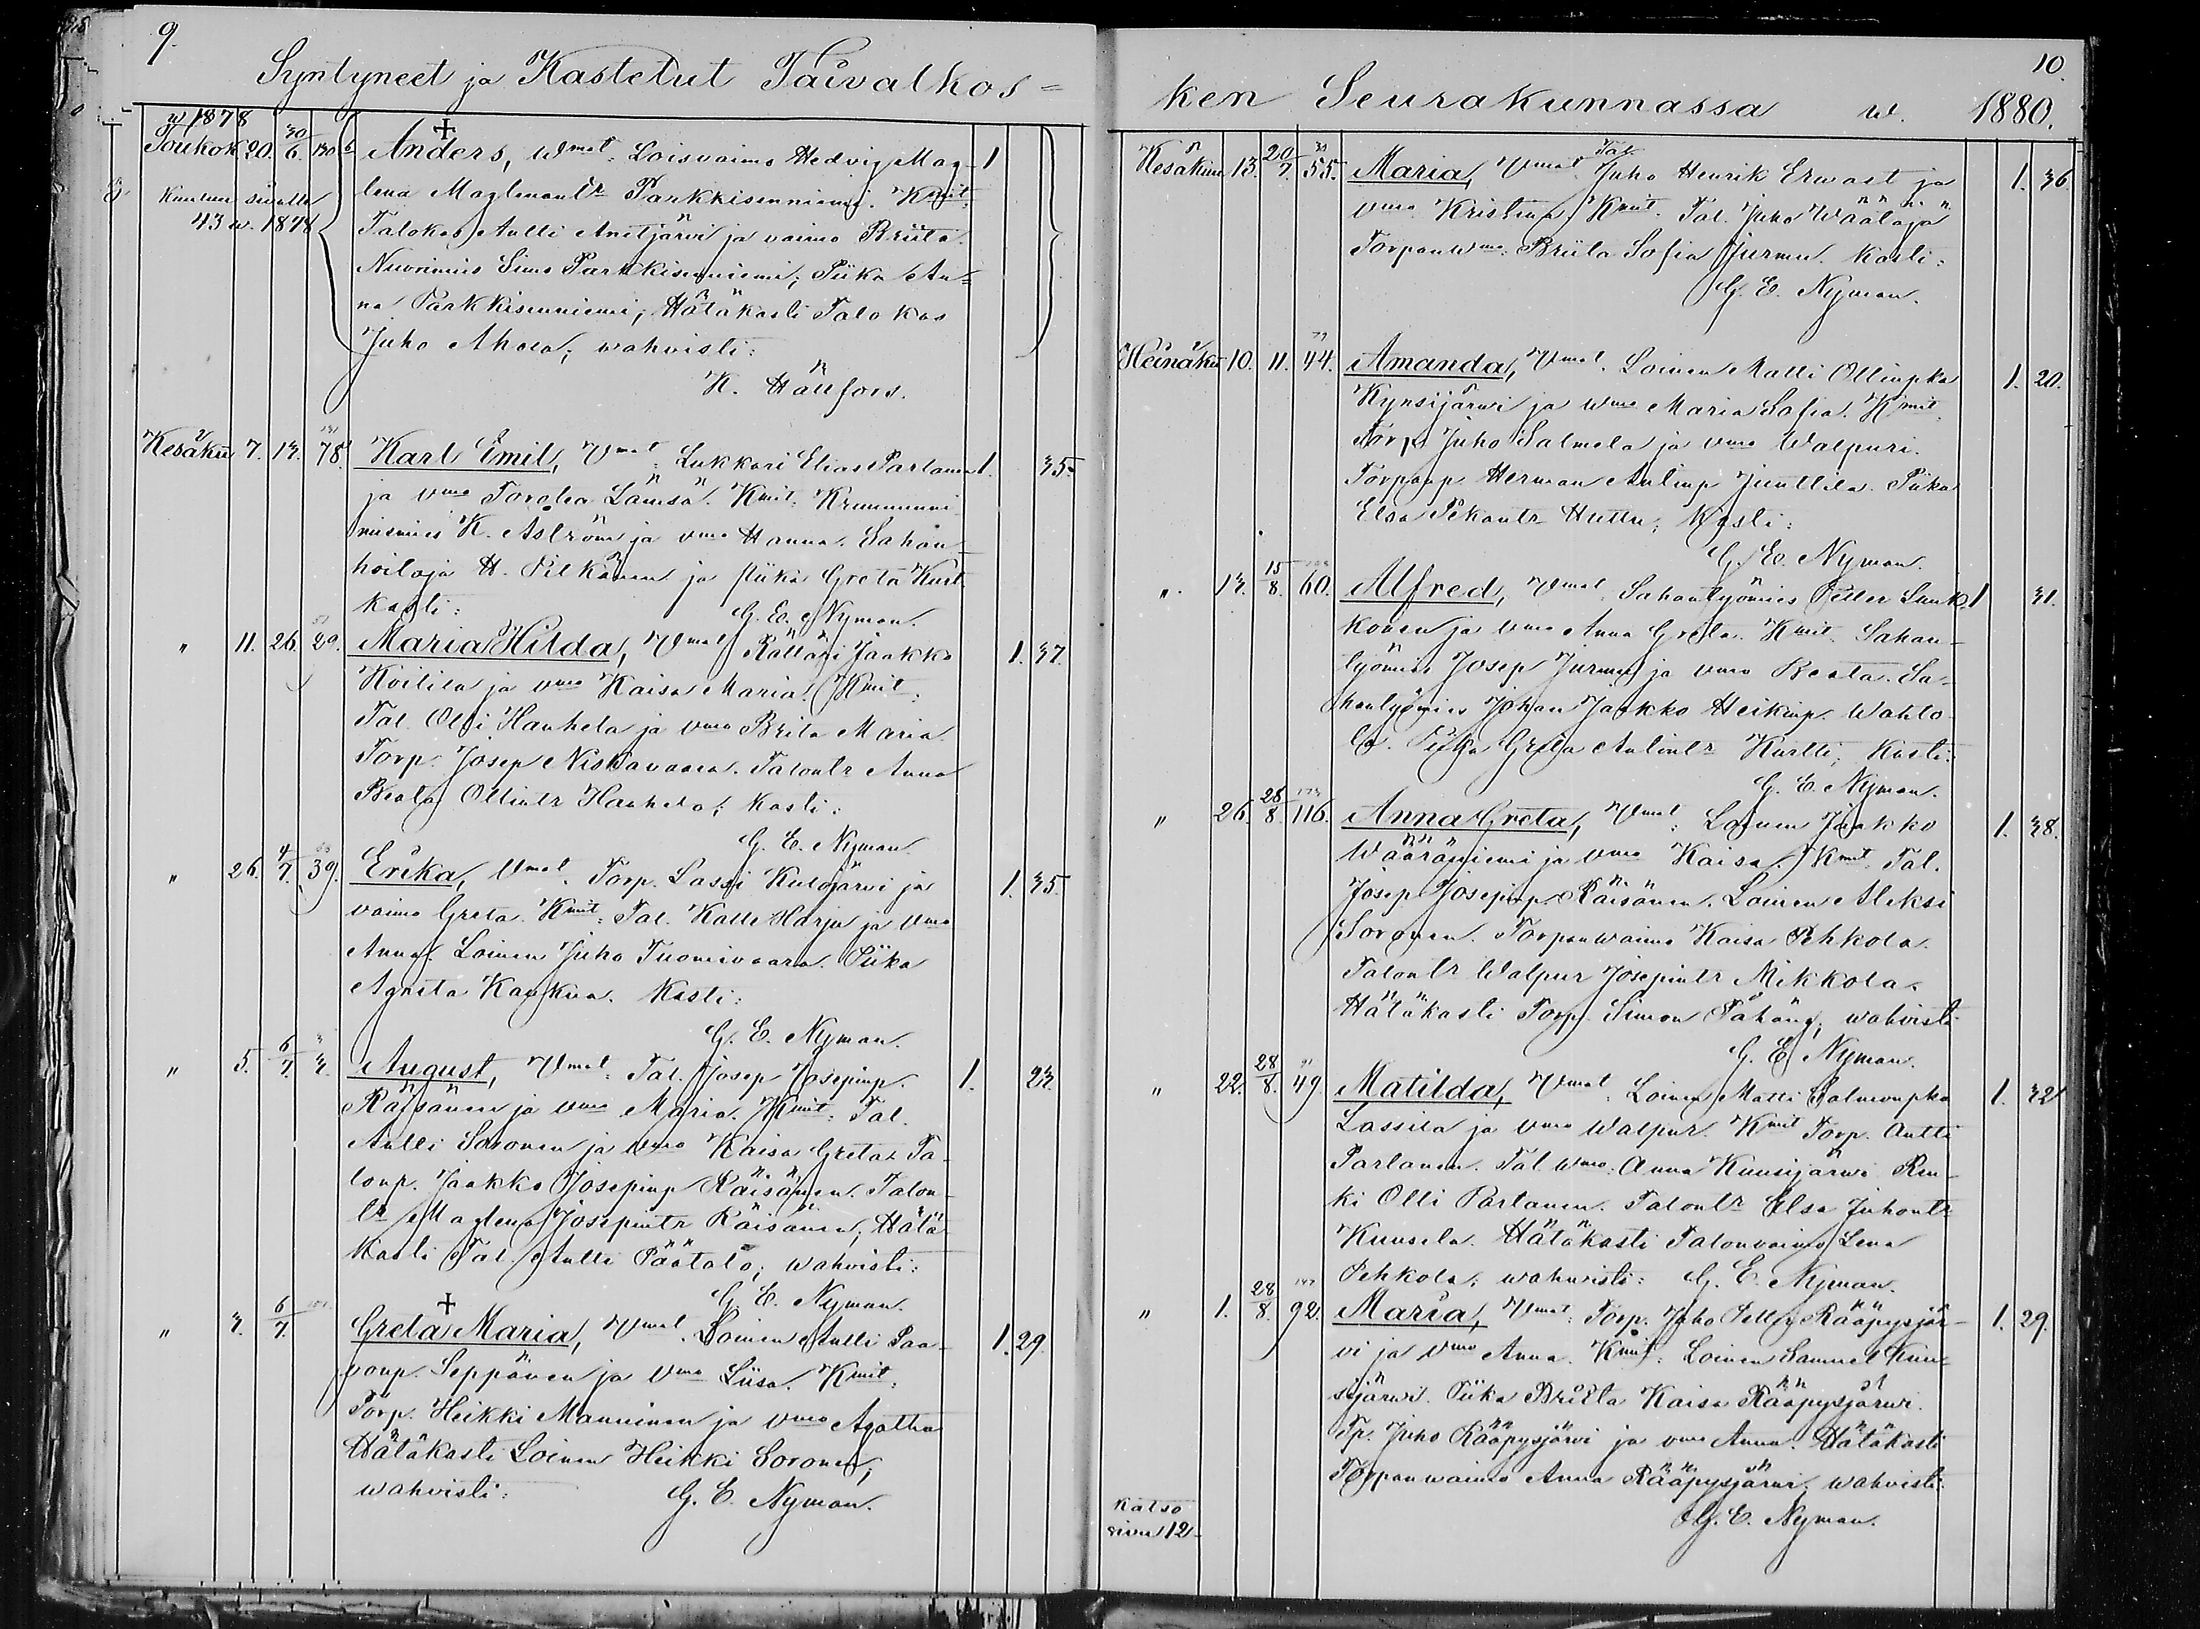 9.
Syntyneet ja Kastetut Taivalkos=
w 1878
Toukok 20. 30/6. 130. 6 Anders, Wmat: Loisvaimo Hedvig Mag- 1
lena Maglenantr Parkkisenniemi. Kmit:
Kuulun sivulle
43 w. 1878
Talokas Antti Anetjärvi ja vaimo Briita.
Nuorimies Simo Parkkisenniemi, Piika An=
na Parkkisenniemi, Hätäkasti Talokas
Juho Ahola; wahvisti:
K. Hällfors.
Kesäku 7. 13. 78. Karl Emil, Vmat: Lukkari Elias Parlanen 1. 35.
ja vmo Torotea Lämsä. Kmit: Kruununni-
mismies K. Aström ja vmo Hanna. Sahan-
hoitaja H. Pitkänen ja piika Greta Kurt
kasti: G. E. Nyman.
" 11. 26. 29. Maria Hilda, Vmat Räätäri Jaakko 1. 37.
Koitila ja vmo Kaisa Maria. Kmit:
Tal. Olli Hanhela ja vmo Brita Maria
Torp. Josep Niskavaara. Talontr Anna
Beata Ollintr Hanhela; kasti:
G. E. Nyman.
" 26. 4/7. 39. Erika, Vmat. Torp. Lassi Kulojärvi ja 1. 35.
vaimo Greta. Kmit: Tal. Kalle Harju ja vmo
Anna. Loinen Juho Tuomivaara. Piika
Agneta Kaukua. Kasti:
G. E. Nyman.
" 5. 6/7. 3. August, Vmat: Tal. Josep Josepinp. 1. 23.
Räisänen ja vmo Maria. Kmit: Tal.
Antti Soronen ja vmo Kaisa Greta. Ta-
lonp. Jaakko Josepinp Räisänen. Talon-
tr Maglena Josepintr Räisänen; Hätä-
kasti Tal. Antti Päätalo; wahvisti:
G. E. Nyman.
" 3. 6/7. Greta Maria, Vmat. Loinen Antti Paa- 1. 29.
vonp. Seppänen ja Vmo Liisa. Kmit:
Torp. Heikki Manninen ja vmo Agatha
Hätäkasti Loinen Heikki Soronen;
wahvisti: G. E. Nyman.
10.
ken Seurakunnassa w. 1880.
Kesäkuu 13. 20/7. 55. Maria, Vmat. Tal. Juho Henrik Erwast ja 1. 36
vmo Kristina. Kmit. Tal. Juho Väätäjä
Torpanwmo. Briita Sofia Jurmu. kasti:
G. E. Nyman.
Heinäku 10. 11. 44. Amanda, Vmat. Loinen Matti Ollinpka 1. 20.
Kynsijärwi ja wmo Maria Sofia. Kmit.
Torp. Juho Salmela ja vmo Walpuri.
Torpanp Herman Antinp Junttila. Piika
Elsa Pekantr Huttu; Kasti:
G. E. Nyman.
" 13. 15/8. 60. Alfred, Vmat. Sahantyömies Petter Sunk, 1 31.
konen ja vmo Anna Greta. Kmit. Sahan-
työmies Josep Jurmu ja vmo Beata. Sa-
hantyömies Johan Jaakko Heikinp. Wahto-
la. Piika Greta Antintr Kurtti, Kasti:
G. E. Nyman.
" 26. 28/8. 116. Anna Greta, Vmat: Loinen Jaakko 1. 38.
Wääräniemi ja vmo Kaisa. Kmit. Tal.
Josep Josepinp. Räisänen. Loinen Aleksi
Soronen. Torpanwaimo Kaisa Pehkola.
Talontr Walpur Josepintr Mikkola.
Hätäkasti Torp. Simon Tähänä, wahvisti
G. E. Nyman.
" 22. 28/8. 49. Matilda, Vmat: Loinen Matti Salmonpka 1. 32
Lassila ja vmo Walpur. Kmit Torp. Antti
Parlanen. Tal. wmo. Anna Kuusijärwi Ren-
ki Olli Parlanen. Talontr Elsa Juhontr
Kuusela. Hätäkasti Talonvaimo Lena
Pehkola; wahwisti: G. E. Nyman.
" 1. 28/8. 92. Maria, Vmat: Torp. Juho Rääpysjär- 1. 29.
vi ja vmo Anna. Kmit: Loinen Samuel Kuu-
sijärwi. Piika Briita Kaisa Rääpysjärwi.
Tp. Juho Rääpysjärvi ja vmo Anna. Hätäkasti
Torpanwaimo Anna Rääpysjärwi, wahvisti.
G. E. Nyman.
Katso
sivu 12